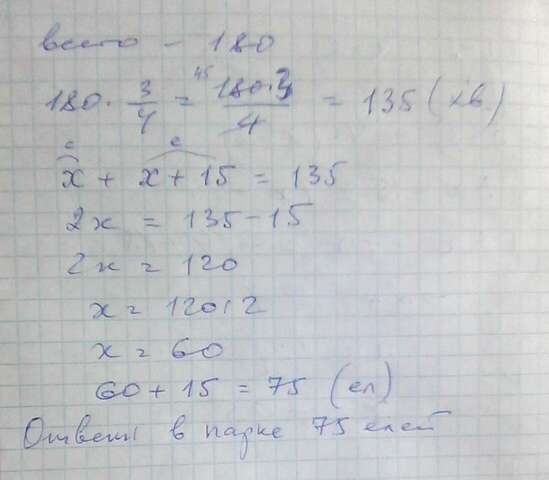 всего - 180
180 · 3/4 = 45 180·3/4 = 135 (хв.)
с е
x + x + 15 = 135
2x = 135 - 15
2x = 120
x = 120 : 2
x = 60
60 + 15 = 75 (ел)
Ответ: в парке 75 елей